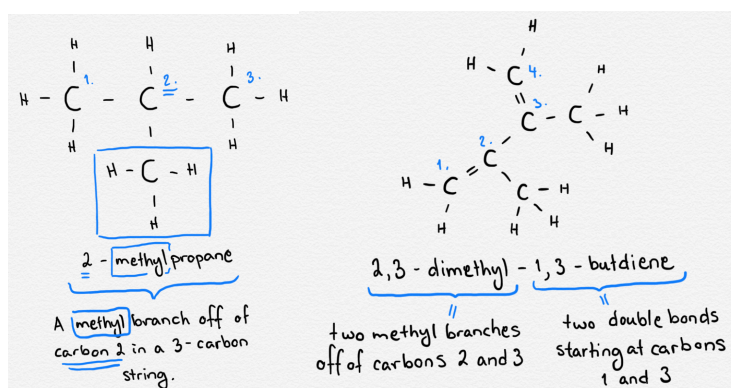 H H H
1. 2. 3.
H - C - C - C - H
H H
H - C - H
H
2 - methyl propane
A methyl branch off of
carbon 2 in a 3-carbon
string.
H
H - C 4. H
3.
C - C - H
2.
1. C H
H - C C - H
H H H
2,3 - dimethyl - 1,3 - butdiene
two methyl branches
off of carbons 2 and 3
two double bonds
starting at carbons
1 and 3